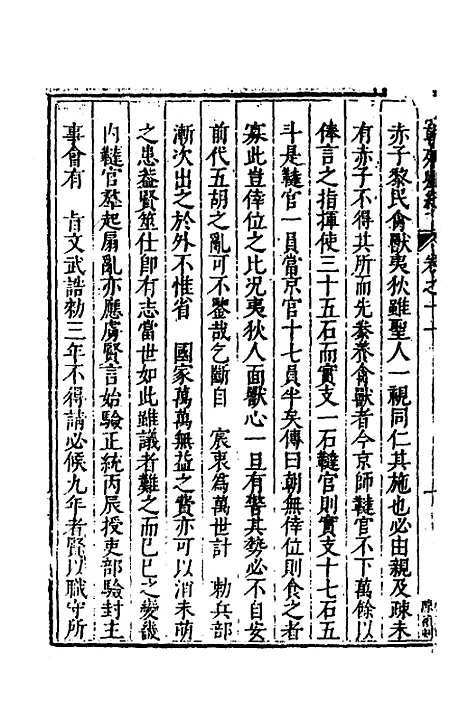 赤子黎民禽獸夷狄雖聖人一視同仁其施也必由親及疎未
有赤子不得其所而先豢養禽獸者今京師韃官不下萬餘以
俸言之指揮使三十五石而實支一石韃官則實支十七石五
斗是韃官一員當京官十七員半矣傳曰朝無倖位則食之者
寡此豈倖位之比況夷狄人面獸心一旦有警其勢必不自安
前代五胡之亂可不鑒哉乞斷自　宸衷為萬世計　勅兵部
漸次出之於外不惟省　國家萬萬無益之費亦可以消未萌
之患蓋賢筮仕即有志當世如此雖議者難之而已巳之變畿
內韃官羣起扇亂亦應虜賢言始驗正統丙辰授吏部驗封主
事會有　旨文武誥勅三年不得請必候九年者賢以職守所
卷之十一